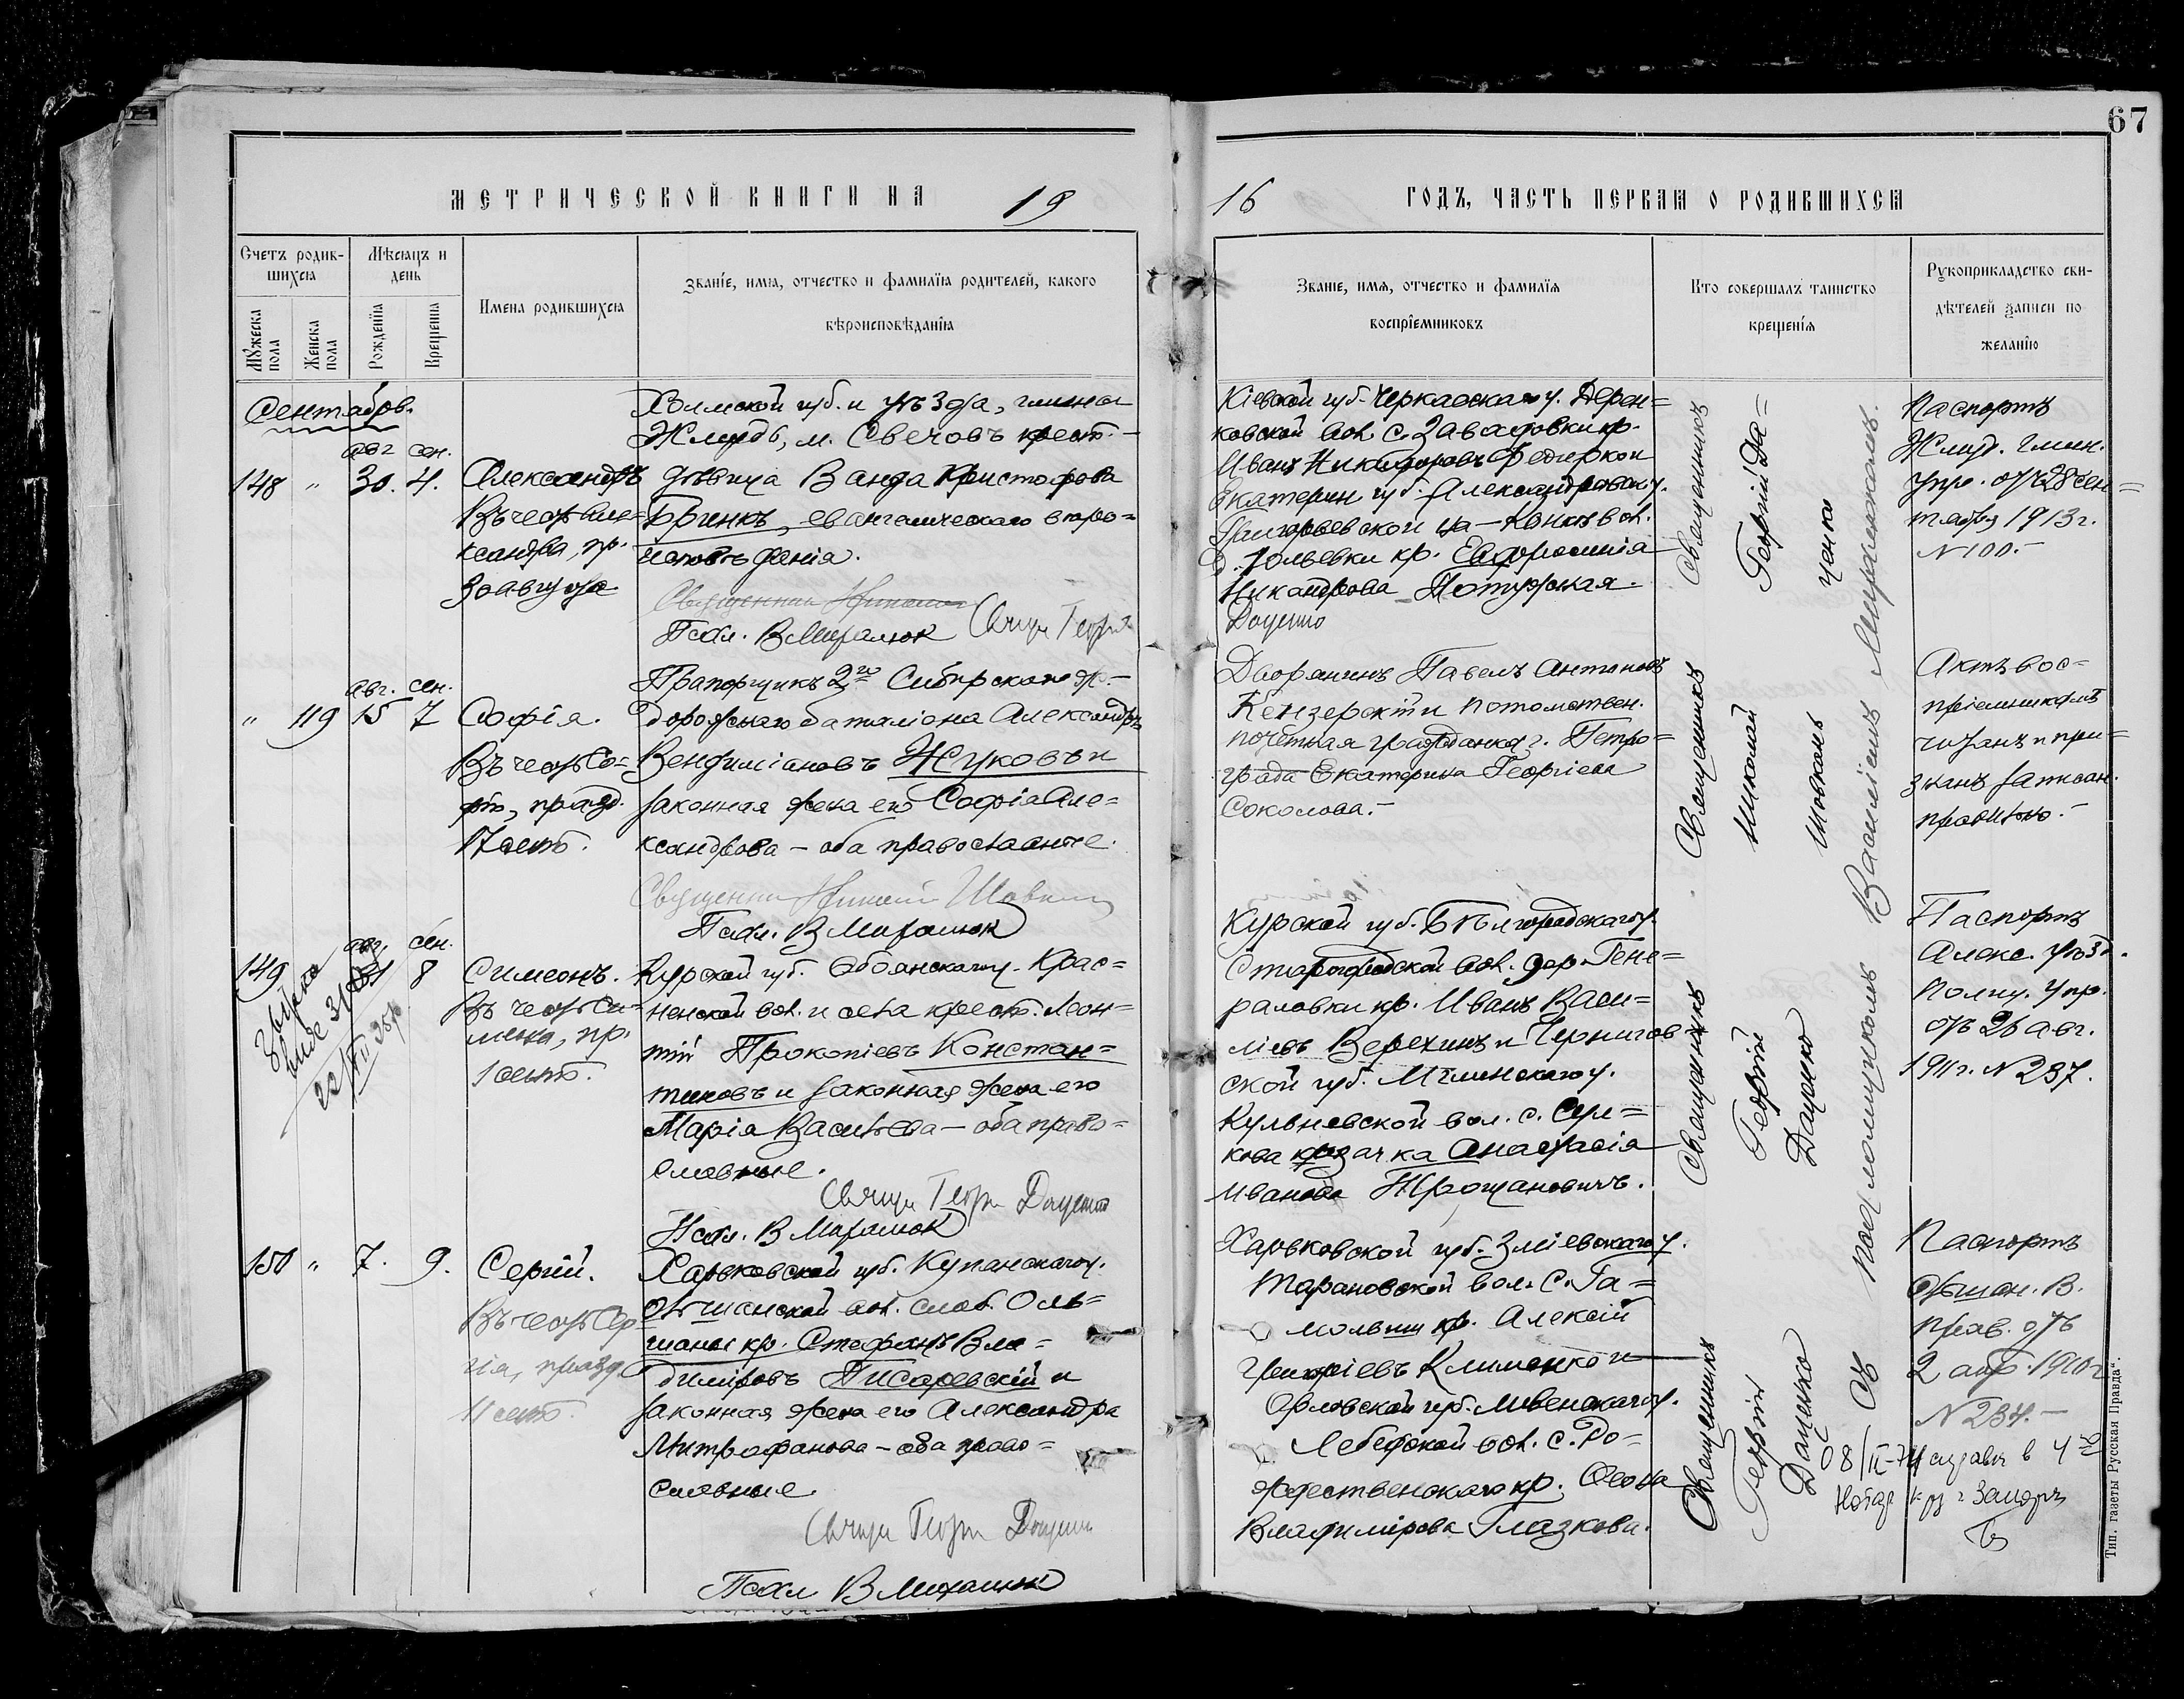 67
МЕТРИЧЕСКОЙ КНИГИ НА 19
16 ГОДЪ, ЧАСТЬ ПЕРВАЯ О РОДИВШИХСЯ
Счетъ родив-
шихся
Мѣсяцъ и
день
Мужеска пола
Женска пола
Рожденія
Крещенія
Имена родившихся
Званіе, имя, отчество и фамилія родителей, какого
вѣроисповѣданія
Званіе, имя, отчество и фамилія
воспріемниковъ
Кто совершалъ таинство
крещенія
Рукоприкладство сви-
дѣтелей записи по
желанію
Сентябрь.
авг сен.
148 " 30. 4.
Александръ
Въ честь Але-
ксандра, пр.
30 августа
Холмской губ. и уѣзда, гмины
Жмудь, м. Свечовъ крест.-
дѣвица Ванда Христофова
Бринкъ, евангелическаго вѣро=
исповѣданія.
Псал. В Миралюк Свящ Георг
Кіевской губ. Черкасскаго у. Дерен=
ковской вол. с. Завадовки кр.
Иванъ Никифоровъ Федирко и
Екатерин губ. Александровск у.
Григорьевской на-Конкѣ вол.
кр. Евфросинія
Никандрова Потужская.
Даценко
Священникъ
Георгій Да=
ценко
Паспортъ
Жмуд. гмин.
упр. отъ 28 сен=
тября 1913 г.
N 100.-
авг. сен.
" 119 15 7
Софія.
Въ честь Со=
фіи, празд.
17 сент.
Прапорщикъ 2го Сибирскаго ж.-
дорожнаго баталіона Александръ
Вендиміановъ Жуковъ и
законная жена его Софія Але=
ксандрова - оба православные.
Священни Николай Шовкопл
Псал. В Миралюк
Дворянинъ Павелъ Антоновъ
и потомствен.
почетная гражданка г. Петро=
града Екатерина Георгіева
Соколова.-
Священникъ
Николай
Актъ вос=
пріемниками
читанъ и при=
знанъ записан.
правильно.-
авг. сен.
149 31 8
Симеонъ.
Въ честь Си=
меона, пр.
1 сент.
Курской губ. Обоянскаго у. Крас=
ненской вол. и села крест. Леон=
тій Прокопіевъ Констан=
тиновъ и законная жена его
Марія Васильева - оба право=
славные.
Свящ Георг Даценко
Псал. В Миралюк
Курской губ. Бѣлгородскаго у.
Старогородской вол. дер. Гене=
раловки кр. Иванъ Васи=
ліевъ Верехинъ и Чернигов
ской губ. Мглинскаго у.
Кульневской вол. с.
кова казачка Анастасія
Иванова
Священникъ
Георгій
Даценко
Паспортъ
Алекс. уѣзд.
Полиц. Упр.
отъ 26 авг.
1911 г. N 237.
150 " 7. 9.
Сергій.
Въ честь Сер=
гія, празд.
11 сент.
Харьковской губ. Купянскаго у.
Ольшанской вол. слоб. Оль=
шаны кр. Стефанъ Вла=
диміровъ Писаревскій и
законная жена его Александра
Митрофанова - оба право=
славные.
Свящ Георг Даценко
Псал В Миралюк
Харьковской губ. Зміевскаго у.
Тарановской вол. с. Га=
мольши кр. Алексій
Григоріевъ Клименко и
Орловской губ. Ливенскаго у.
вол. с. Ро=
ждественскаго кр.
Владимірова Глазкова.
Священникъ
Георгій
Даценко
Съ псаломщикомъ Василіемъ Миралюкомъ.
Паспортъ
Ольшан. В.
Прав. отъ
2 апр. 1910 г
N 234.-
Тип. газеты „Русская Правда“.